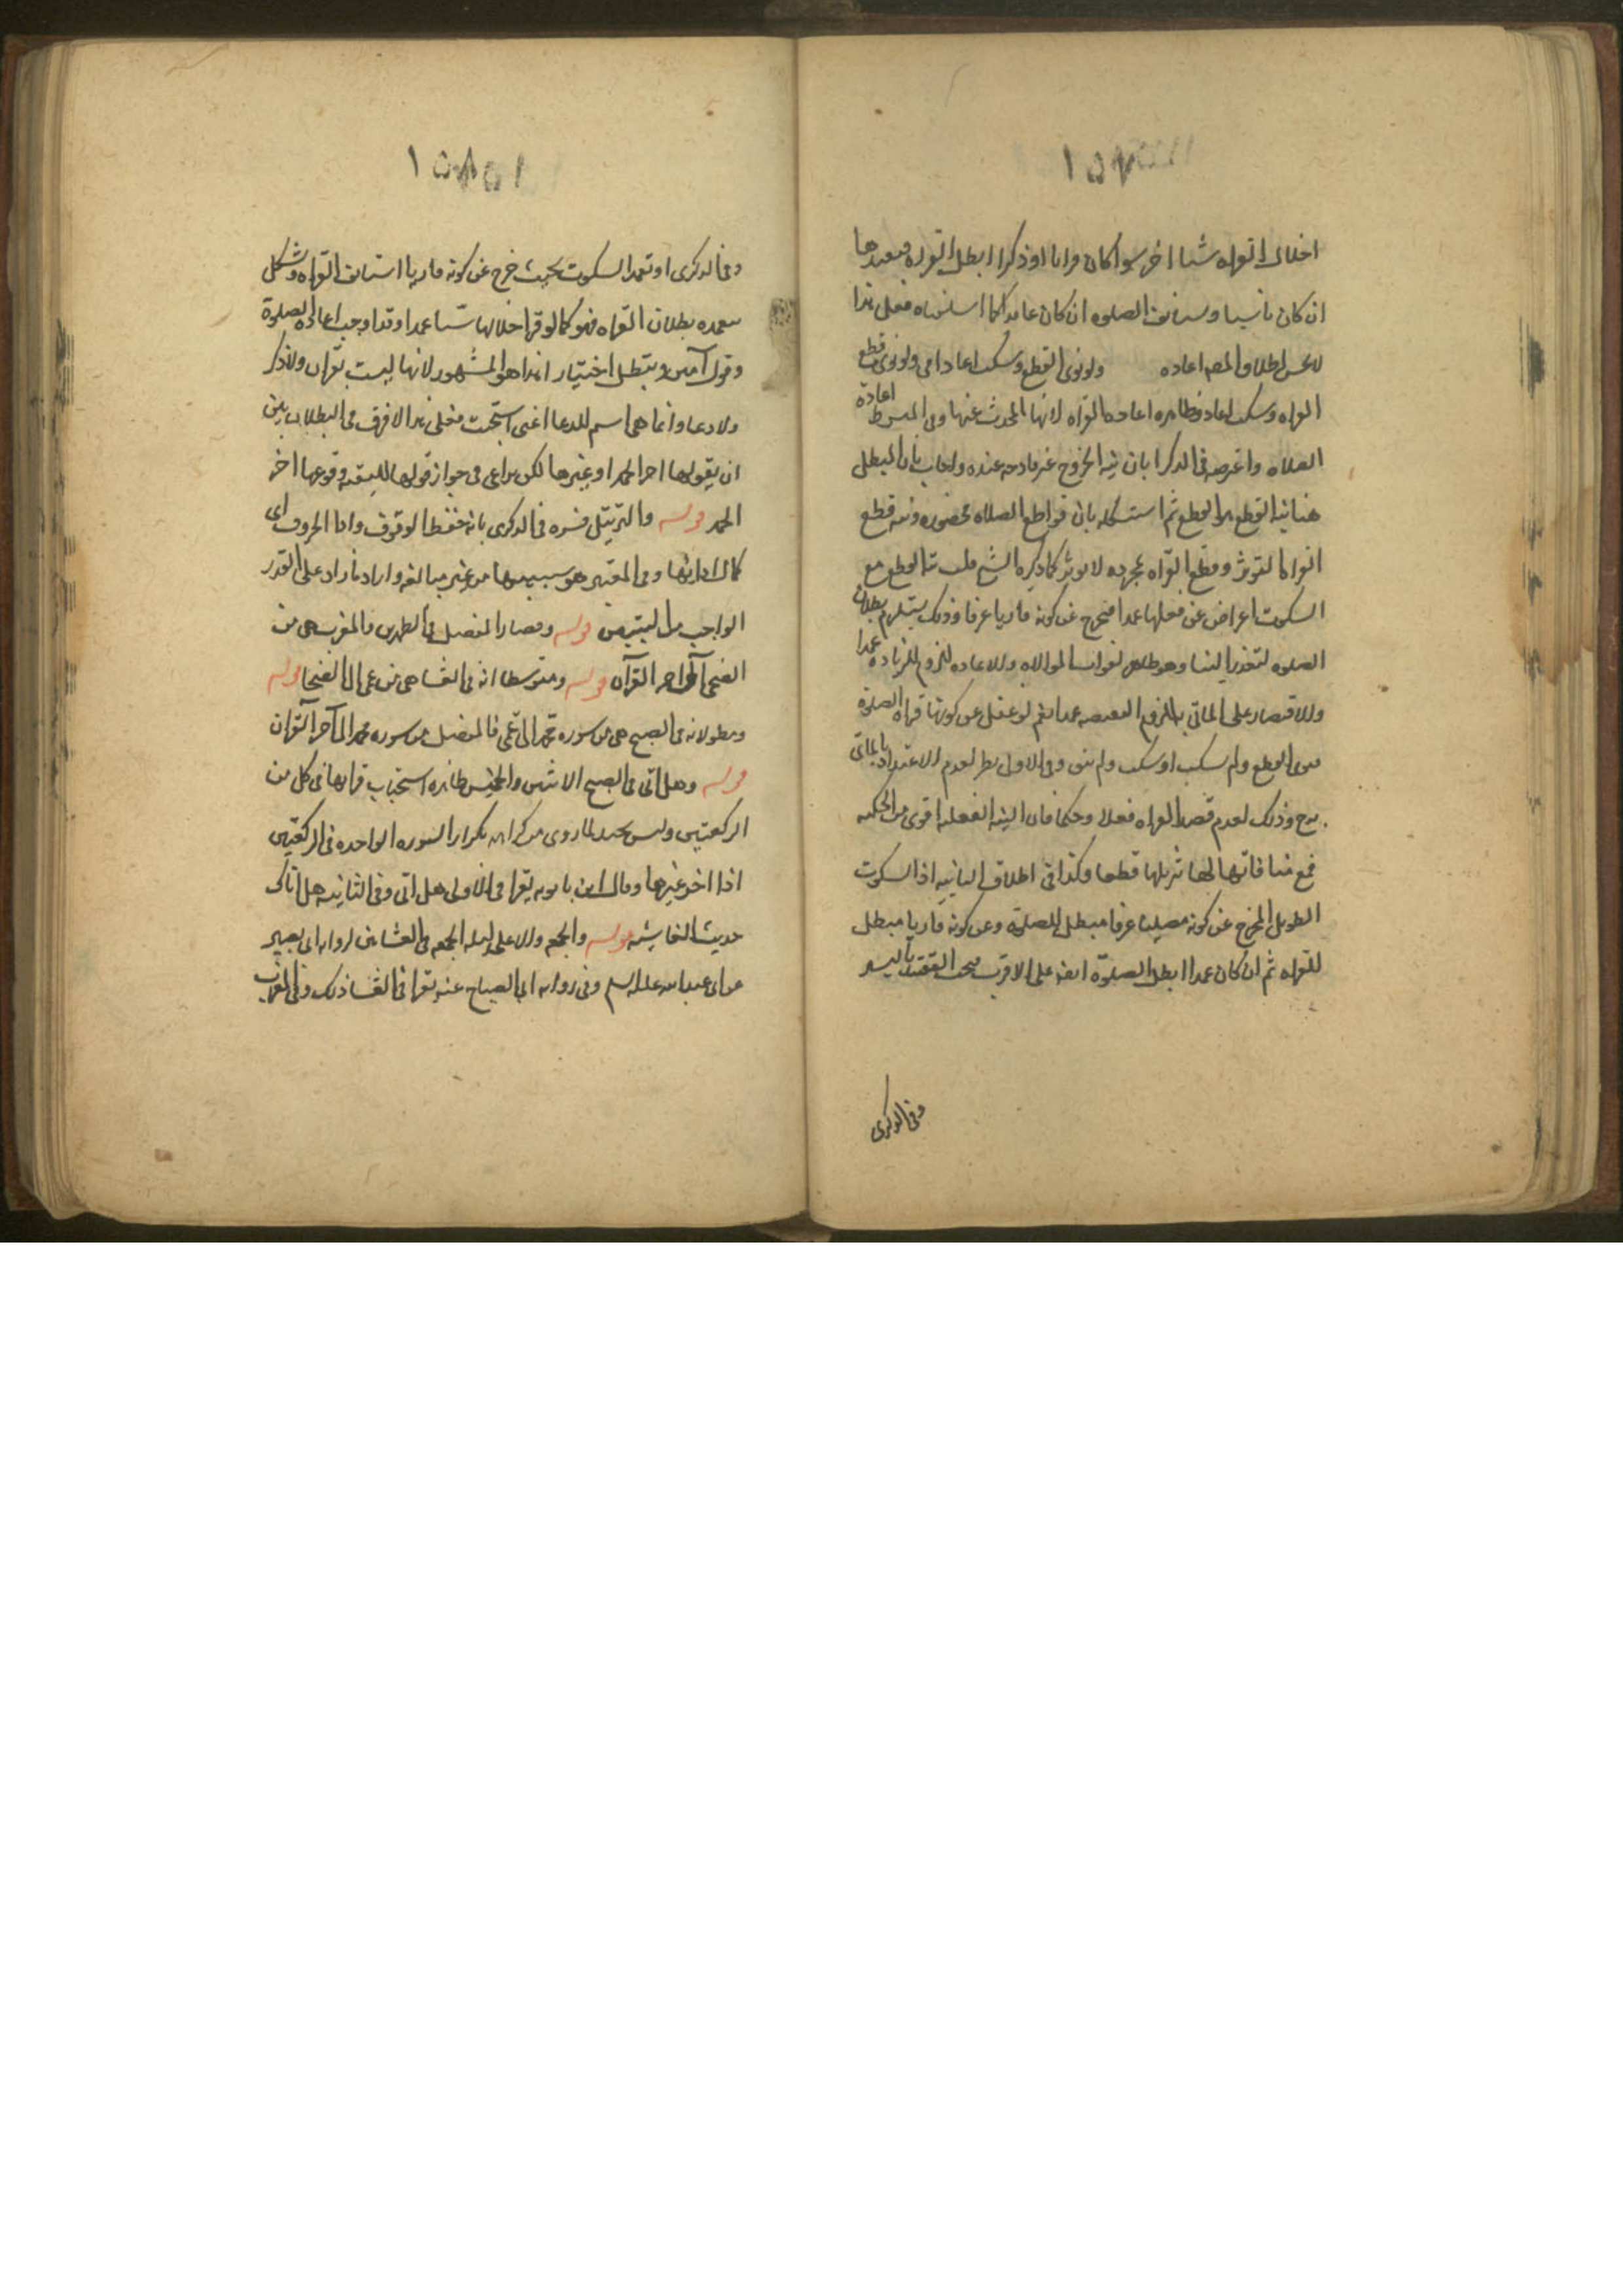 اخلال القراه شيا اخر سوا كان قرانا او ذكرا ابطل القراه فيعيدها
ان كان ناسيا وستانف الصلوه ان كان عامدا كما اسلفناه فعلى هذا
لا يحسن اطلاق المصه اعاده ولو نوى القطع وسكت اعاد امى ولو نوى قطع
القراه وسكت اعاد فظاهره اعاده القراه لانها المحدث عنها وفى المبسوط اعادة
الصلاه واعترضه فى الذكرا بان نيه الخروج غير قادحه عنده واجاب بان المبطل
هنا نيه القطع مع القطع ثم استشكله بان قواطع الصلاه محصوره ونيه قطع
القراه لا تؤثر وقطع القراه بمجرده لا يوثر كما ذكره الشيخ قلت القطع مع
السكوت اعراض عن فعلها عمدا فيخرج عن كونه قاريا عرفا وذلك يستلزم بطلان
الصلوه لتعذر البنا وهو ظاهر لفوات الموالاه والاعاده للزوم الزيادة عمدا
والاقتصار على الماتى به للزوم النقيصه عمدا نعم لو غفل عن كونها قراه الصلوة
فنوى القطع ولم يسكت او سكت ولم ينو وفى الاول نظر لعدم الاعتداد بالماتى
به ح وذلك لعدم قصد القراه فعلا وحكما فان النيه الفعليه اقوى من الحكميه
فمع منافاتها لها تزيلها قطعا وكذا فى اطلاق الثانيه اذ السكوت
الطويل المخرج عن كونه مصليا عرفا مبطل للصلوة وعن كونه قاريا مبطل
للقراه ثم ان كان عمدا ابطل الصلوة ايضا على الاقرب فيجب التقييد باليسير
وفى الذكرى
وفى الذكرى او تعمد السكوت بحيث خرج عن كونه قاريا استانف القراه ويشكل
تعمده بطلان القراه فهو كما لو قرا خلالها شيا عمدا وقد اوجب اعاده الصلوة
وقول آمين ويبطل اختيارا هذا هو المشهور لانها ليست بقران ولا ذكر
ولا دعا وانما هى اسم للدعا اعنى استجب فعلى هذا لا فرق فى البطلان بين
ان يقولها اخر الحمد او غيرها لكن يراعى فى جواز قولها للتقيه وقوعها اخر
الحمد قوله والترتيل فسره فى الذكرى بانه حفظ الوقوف وادا الحروف اى
كمال ادائها وفى المعتبر هو تبيينها من غير مبالغه واراد ما زاد على القدر
الواجب من التبيين قوله وقصار المفصل فى الظهرين والمغرب هى من
الضحى الى اخر القرآن قوله ومتوسطاته فى العشا هى من عم الى الضحى قوله
ومطولاته فى الصبح هى من سوره محمد الى عم فالمفصل من سوره محمد الى آخر القرآن
قوله وهل اتى فى الصبح الاثنين والخميس ظاهره استحباب قرائها فى كل من
الركعتين وليس بجيد لما روى من كراهه تكرار السوره الواحده فى الركعتين
اذا احسن غيرها وقال ابن بابويه يقرا فى الاولى هل اتى وفى الثانيه هل اتاك
حديث الغاشيه قوله والجمعه والاعلى ليله الجمعه فى العشائين لروايه ابى بصير
عن ابى عبد الله عليه السلم وفى روايه ابى الصباح عنه يقرا فى العشا ذلك وفى المغرب